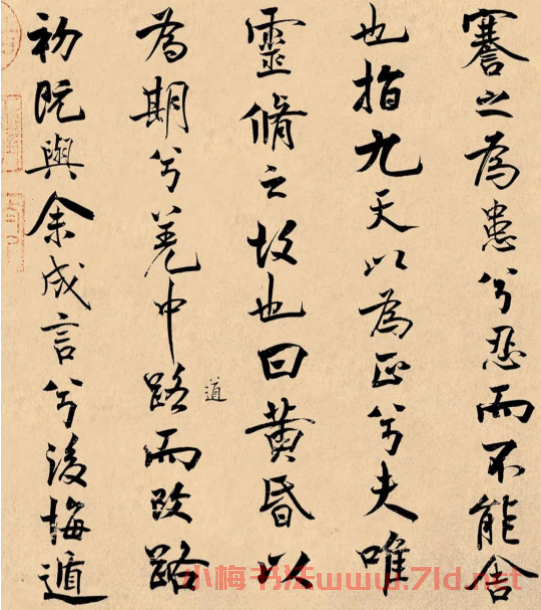 謇之為患兮忍而不能舍
也指九天以為正兮夫唯
靈脩之故也曰黃昏以
為期兮羌中路而改路
道
初既與余成言兮後悔遁
小梅书法www.7ld.net